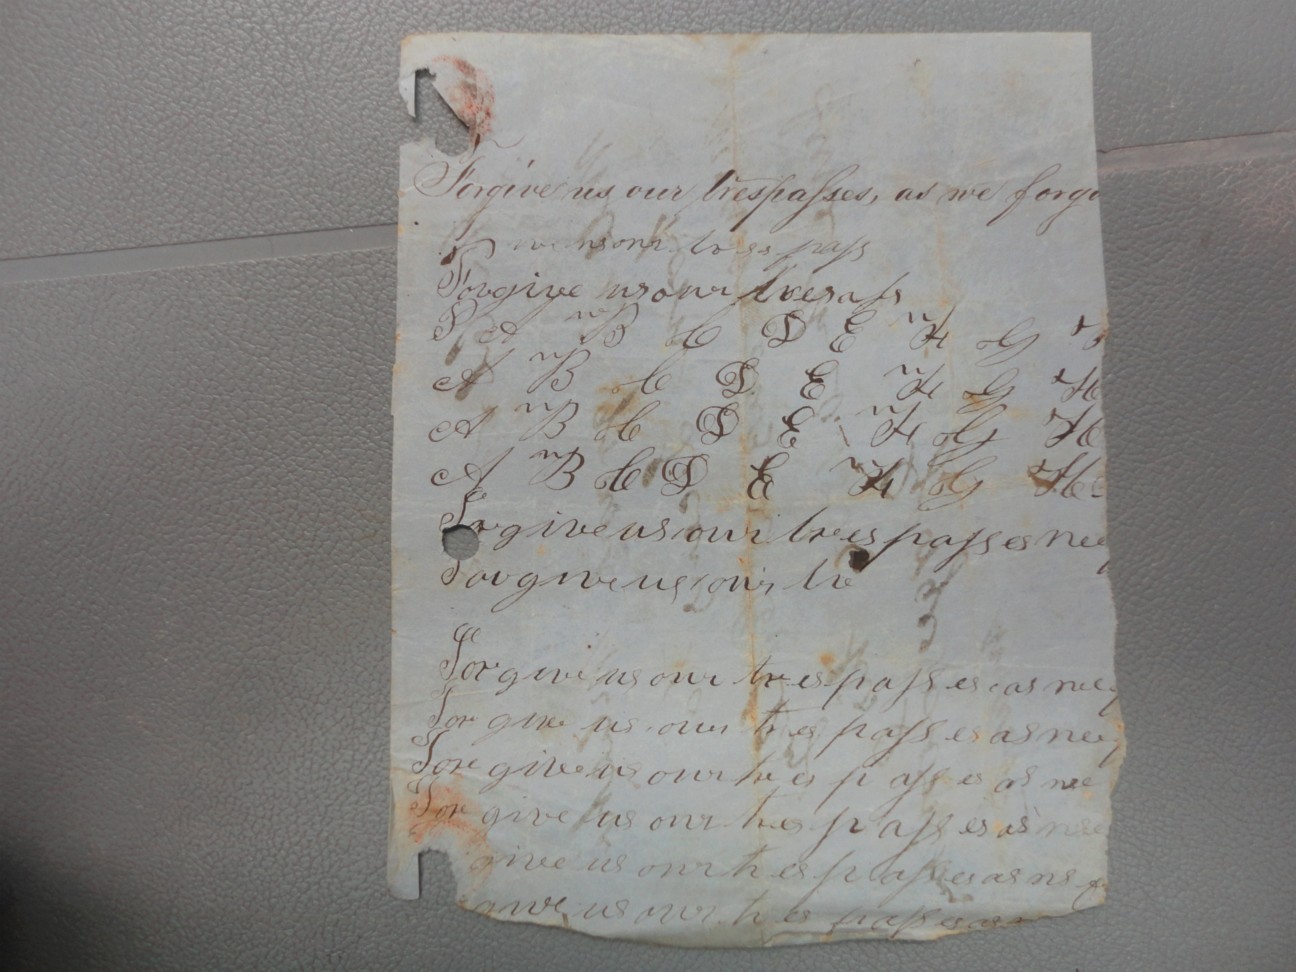 Forgive us our trespasses, as we forgi
F ive us our tres pass
Forgive us our tresass
F A B C D E F G H
A B C D E F G H
A B C D E F G H
A B C D E F G H
Forgive us our trespasses we
Forgive us our tre
Forgive us our trespasses as we
For give us our tres passes as we
For give us our tres passes as we
For give us our tres passes as we
give us our tres passes as we
give us our tres passes as